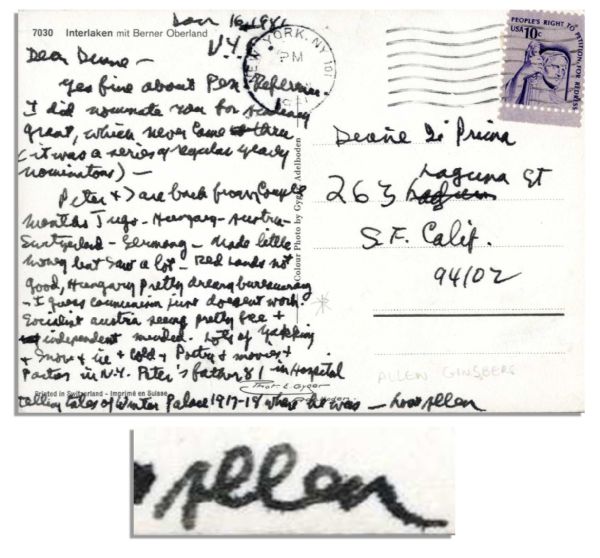 7030 Interlaken mit Berner Oberland
Jan 16, 1981
N.Y.C.
NEW YORK, NY 101
PM
1981
PEOPLE'S RIGHT TO PETITION FOR REDRESS
USA 10c
Dear Diane —
Yes fine about Pen Reference
I did nominate you for
grant, which never came thru
(it was a series of regular yearly
nominations) —
Peter & I are back from couple
months Jugo - Hungary - Austria -
Switzerland - Germany - Made little
money but saw a lot - Red Lands not
good, Hungary pretty dreary bureaucracy
- I guess communism just doesent work.
Socialist austria seems pretty free &
independent minded. Lots of yakking
& snow & ice & cold & Poetry & movies &
Parties in N.Y. Peter's father 81 - in Hospital
telling tales of Winter Palace 1917-18 where he was — love Allen
Printed in Switzerland - Imprimé en Suisse
Colour Photo by Gyger Adelboden
Phot. E. Gyger
Adelboden
Diane Di Prima
Laguna St
263
S.F. Calif.
94102
ALLEN GINSBERG
Allen